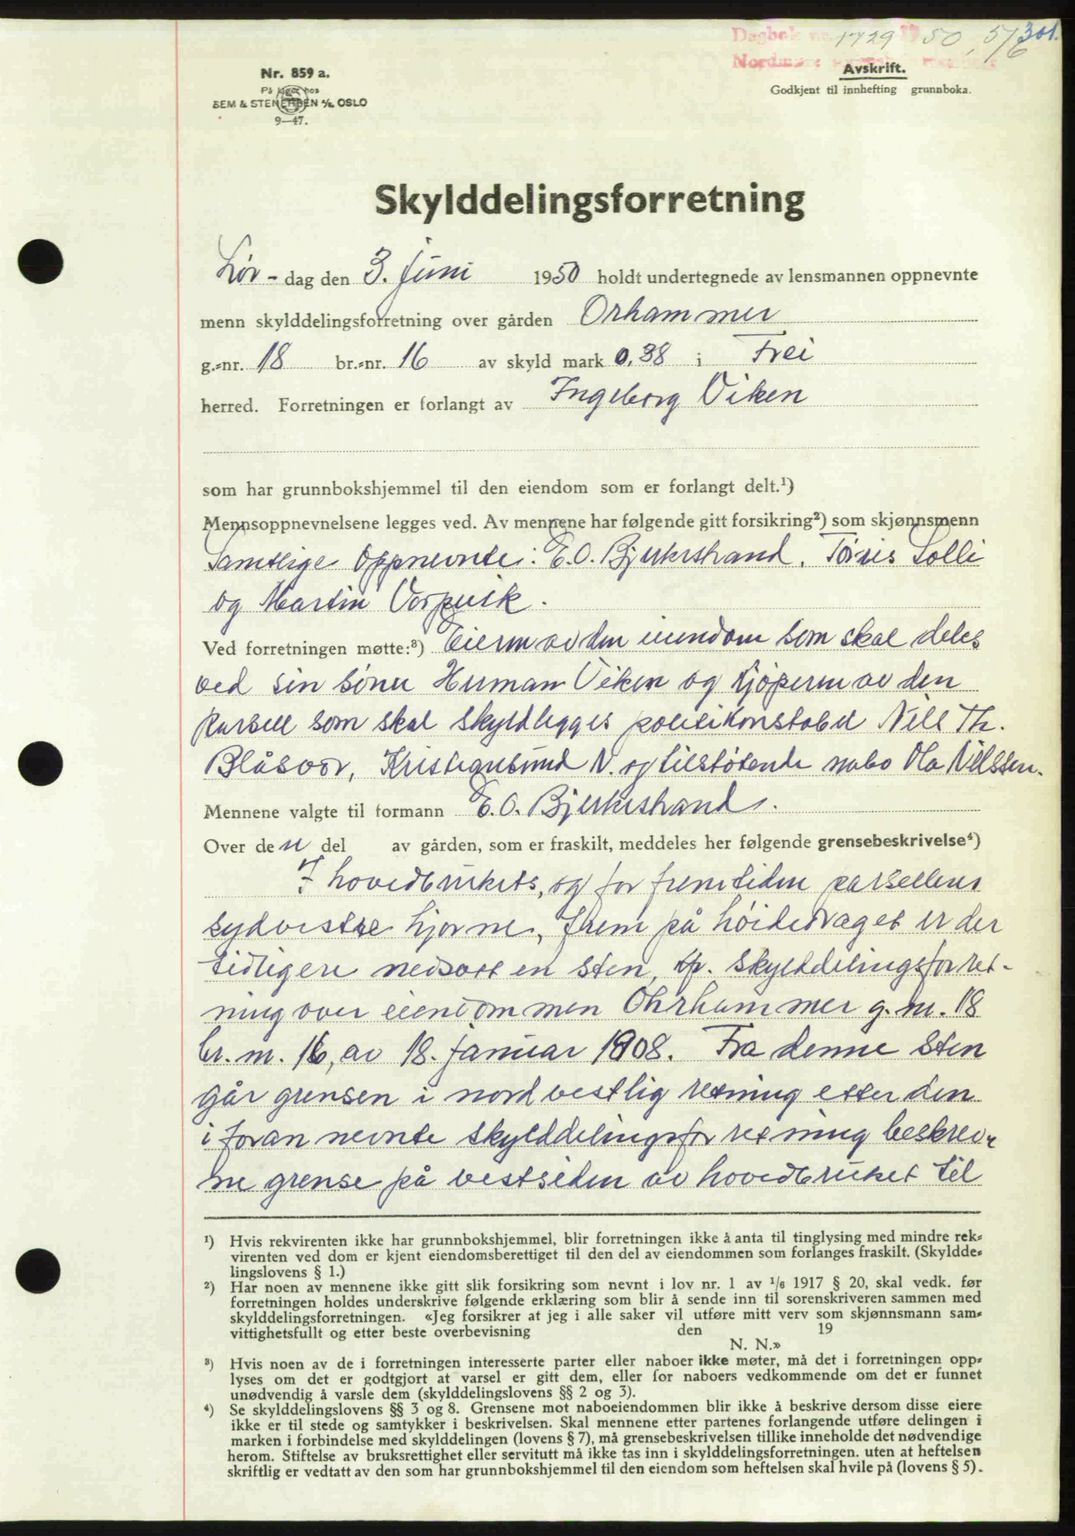 Dagbok nr. 1729 1950, 5/6 301.
Nordmøre
Nr. 859 a.
På lager hos
SEM & STENERSEN A/S, OSLO
9—47.
Avskrift.
Godkjent til innhefting grunnboka.
Skylddelingsforretning
Lør - dag den 3. juni 1950 holdt undertegnede av lensmannen oppnevnte
menn skylddelingsforretning over gården Orhammer
g.-nr. 18 br.-nr. 16 av skyld mark 0,38 i Frei
herred. Forretningen er forlangt av Ingeborg Viken
som har grunnbokshjemmel til den eiendom som er forlangt delt.¹)
Mennsoppnevnelsene legges ved. Av mennene har følgende gitt forsikring²) som skjønnsmenn
Samtlige oppnevnte: E.O. Bjerkestrand, Tøris Solli
og Martin Vorpvik.
Ved forretningen møtte:³) Eieren av den eiendom som skal deles
ved sin sønn Herman Viken og kjøperen av den
parsell som skal skyldlegges politikonstabel Nils Th.
Blåsvær, Kristiansund N. og tilstøtende nabo Ola Nilssen.
Mennene valgte til formann E.O. Bjerkestrand.
Over den del av gården, som er fraskilt, meddeles her følgende grensebeskrivelse⁴)
I hovedbrukets, og for fremtiden parsellens
sydvestre hjørne, frem på høidedraget er der
tidligere nedsatt en sten, kfr. skylddelingsforret-
ning over eiendommen Ohrhammer g.nr. 18
br.nr. 16, av 18. januar 1908. Fra denne sten
går grensen i nordvestlig retning etter den
i foran nevnte skylddelingsforretning beskrev-
ne grense på vestsiden av hovedbruket til
¹) Hvis rekvirenten ikke har grunnbokshjemmel, blir forretningen ikke å anta til tinglysing med mindre rek-
virenten ved dom er kjent eiendomsberettiget til den del av eiendommen som forlanges fraskilt. (Skyldde-
lingslovens § 1.)
²) Har noen av mennene ikke gitt slik forsikring som nevnt i lov nr. 1 av 1/6 1917 § 20, skal vedk. før
forretningen holdes underskrive følgende erklæring som blir å sende inn til sorenskriveren sammen med
skylddelingsforretningen. «Jeg forsikrer at jeg i alle saker vil utføre mitt verv som skjønnsmann sam-
vittighetsfullt og etter beste overbevisning den 19
N. N.»
³) Hvis noen av de i forretningen interesserte parter eller naboer ikke møter, må det i forretningen opp-
lyses om det er godtgjort at varsel er gitt dem, eller for naboers vedkommende om det er funnet
unødvendig å varsle dem (skylddelingslovens §§ 2 og 3).
⁴) Se skylddelingslovens §§ 3 og 8. Grensene mot naboeiendommen blir ikke å beskrive dersom disse eiere
ikke er til stede og samtykker i beskrivelsen. Skal mennene etter partenes forlangende utføre delingen i
marken i forbindelse med skylddelingen (lovens § 7), må grensebeskrivelsen tillike inneholde det nødvendige
herom. Stiftelse av bruksrettighet eller servitutt må ikke tas inn i skylddelingsforretningen, uten at heftelsen
skriftlig er vedtatt av den som har grunnbokshjemmel til den eiendom som heftelsen skal hvile på (lovens § 5).